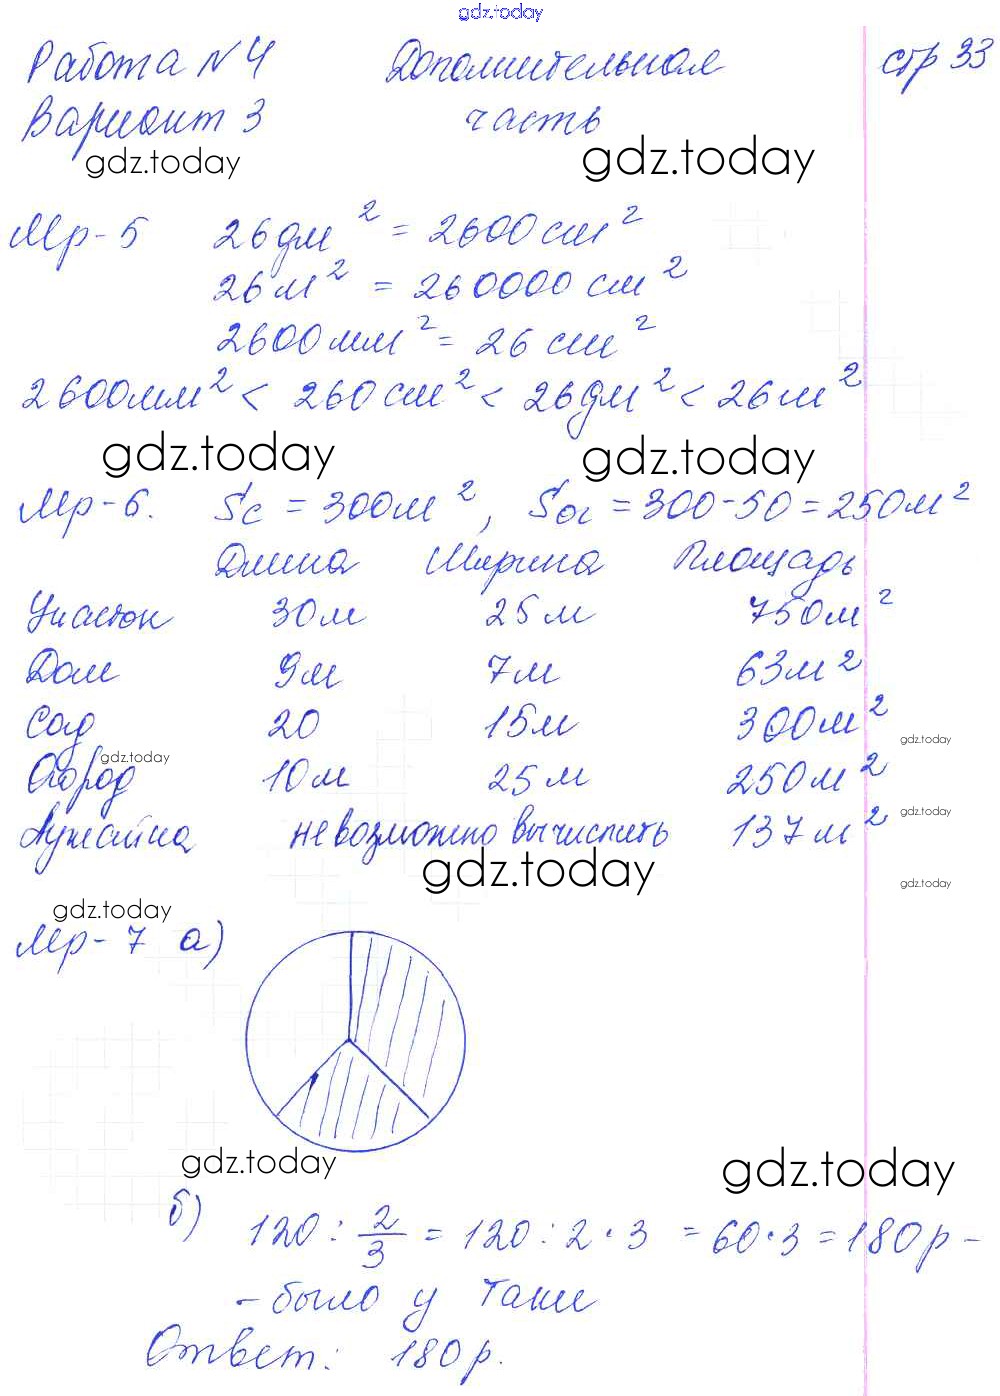 gdz.today
Работа №4 Дополнительная стр 33
Вариант 3 часть
gdz.today gdz.today
Мр-5 26дм² = 2600см²
26м² = 260000см²
2600мм² = 26см²
2600мм² < 260см² < 26дм² < 26м²
gdz.today gdz.today
Мр-6. Sс = 300м², Sог = 300-50=250м²
Длина Ширина Площадь
Участок 30м 25м 750м²
Дом 9м 7м 63м²
Сад 20 15м 300м²
gdz.today gdz.today
Огород 10м 25м 250м²
gdz.today
Лужайка невозможно вычислить 137м²
gdz.today gdz.today
gdz.today
Мр-7 а)
gdz.today gdz.today
б) 120 : 2/3 = 120 : 2 · 3 = 60·3=180р -
- было у Тани
Ответ: 180р.